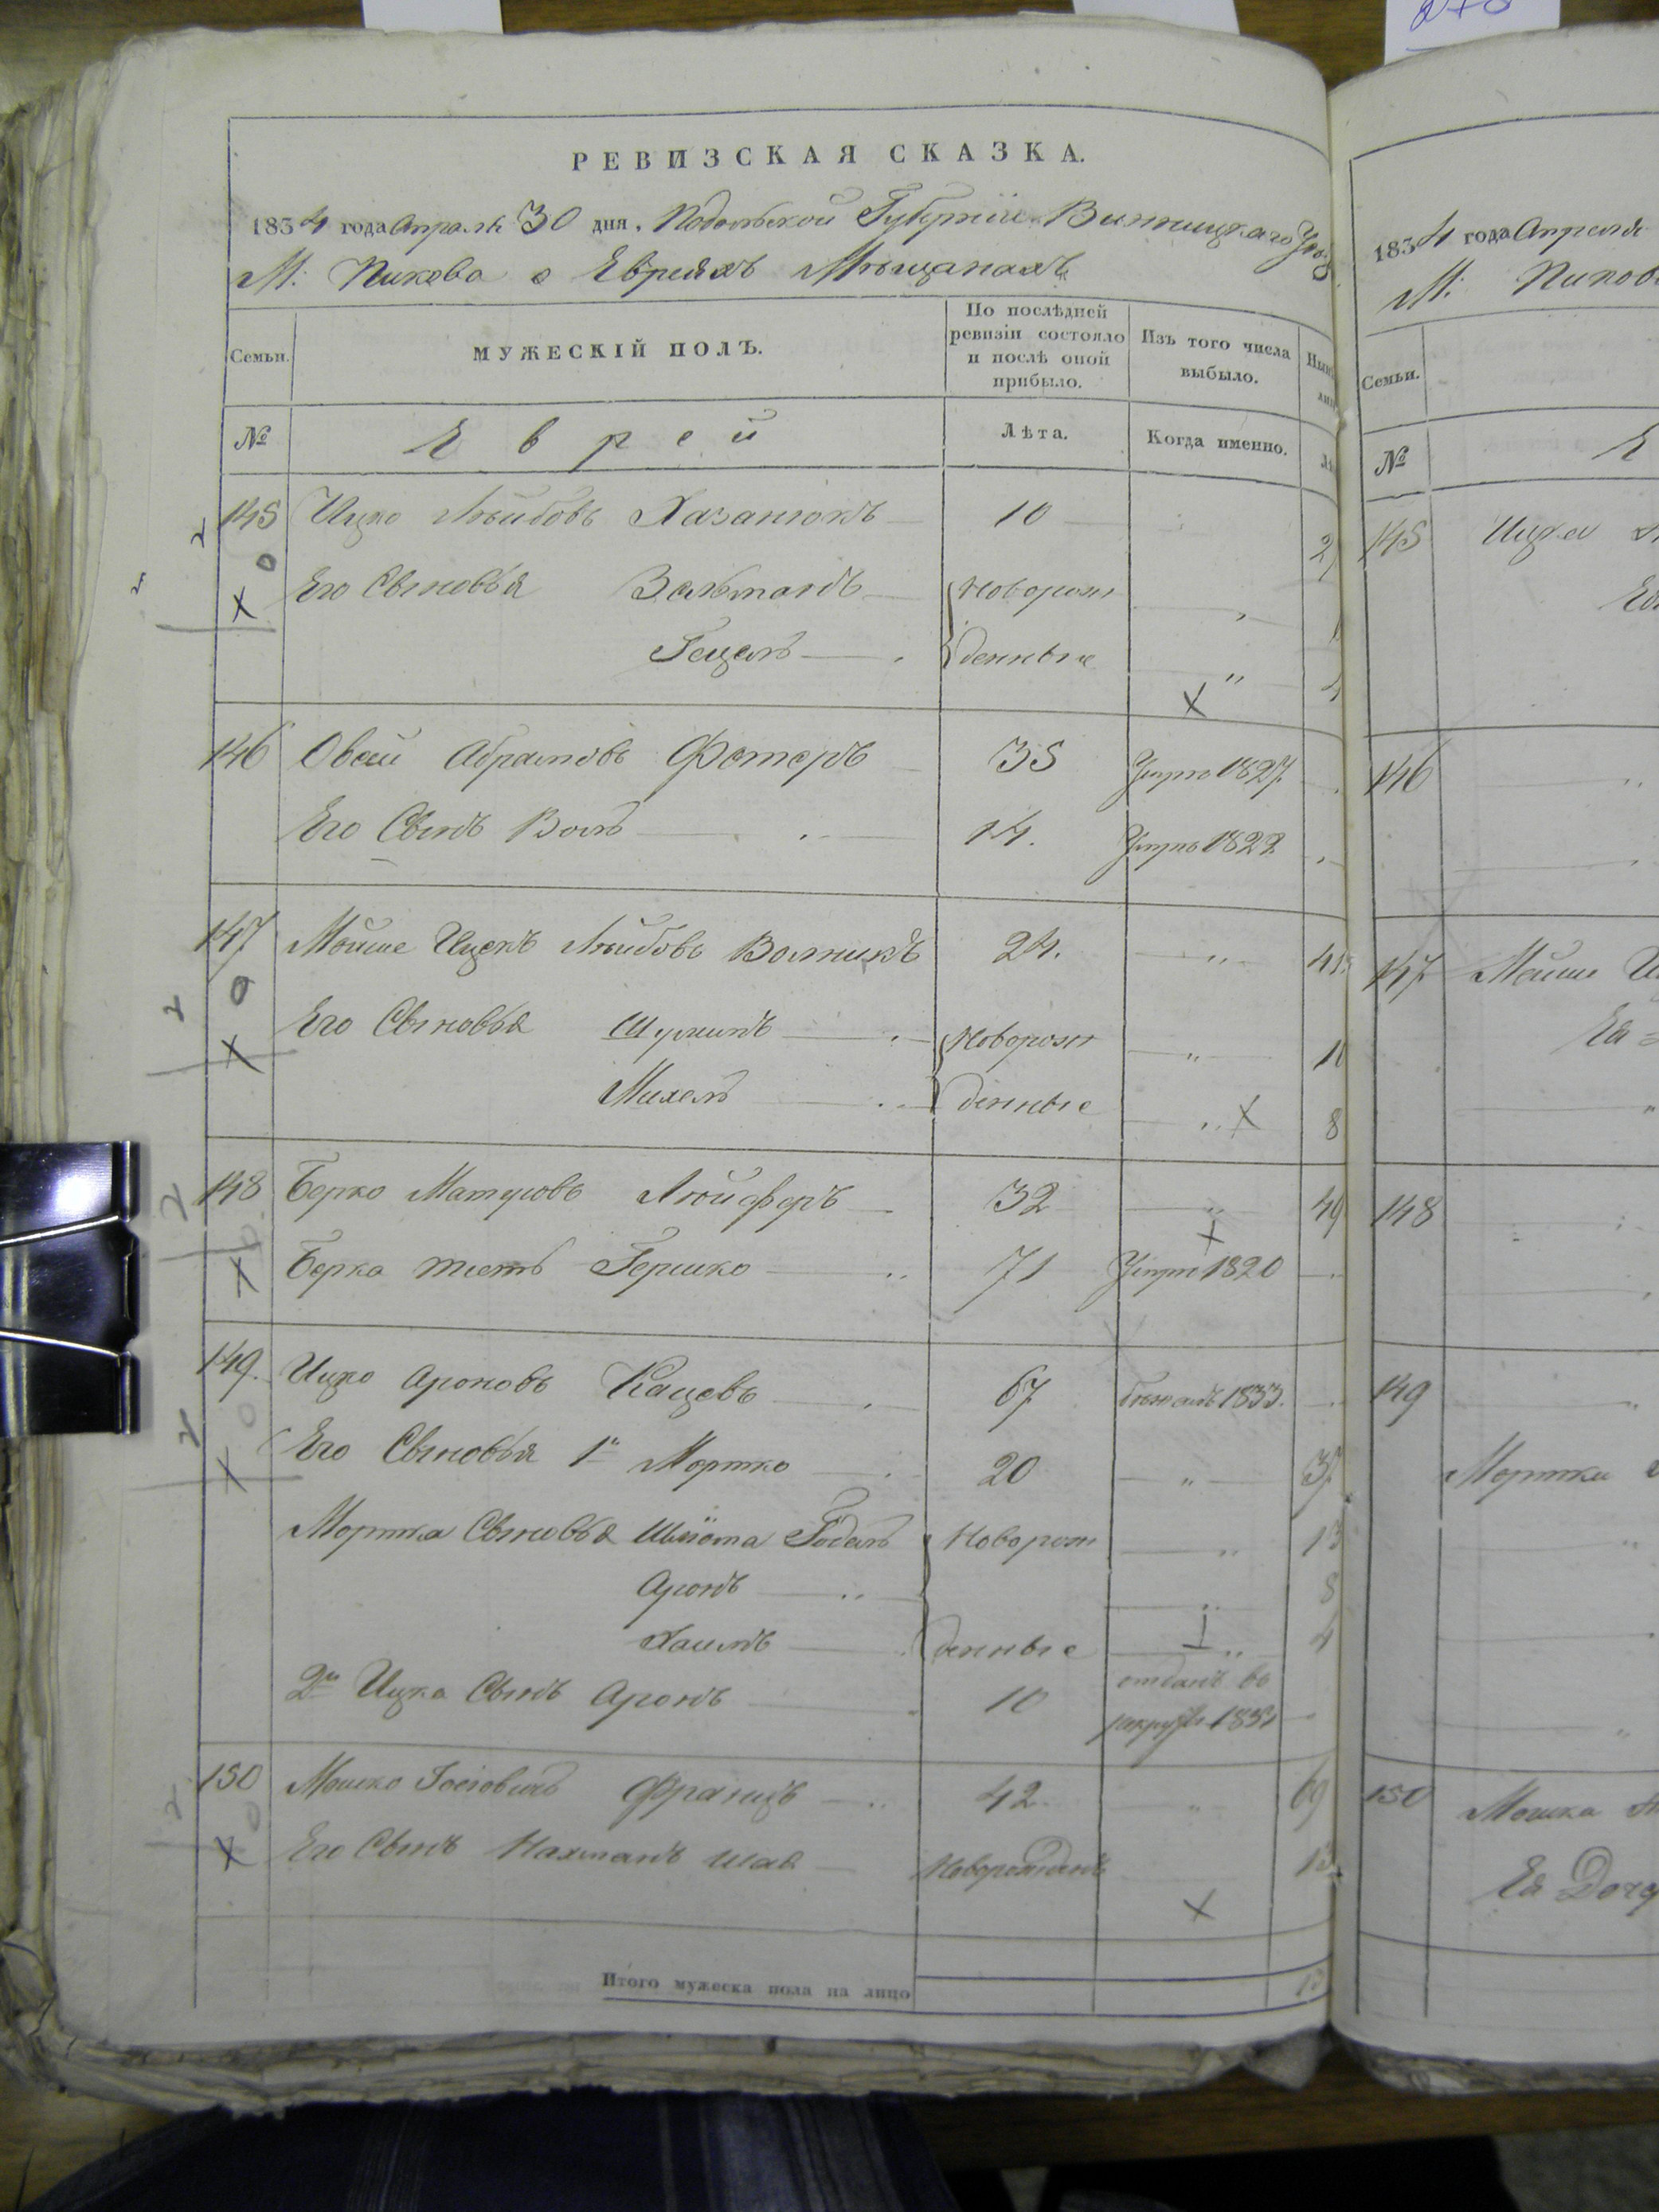 РЕВИЗСКАЯ СКАЗКА.
1834 года Апреля 30 дня. Подольской Губернии Винницкаго
М: Пикова о Евреяхъ Мѣщанахъ
Семьи. МУЖЕСКІЙ ПОЛЪ. По послѣдней ревизіи состояло и послѣ оной прибыло. Изъ того числа выбыло.
№ Еврей Лѣта. Когда именно.
145 Ицко Лейбовъ Хазанюкъ 10
Его Сыновья Зельманъ Новорож
Гецель денные
146 Овсей Абрамовъ Фотеръ 35 Умре 1827
Его Сынъ Волъ 14. Умре 1822
147 Мойше Ицекъ Лейбовъ Волникъ 24.
Его Сыновья Шулимъ Новорож 10
Михель денные 8
148 Берко Матусовъ 32 49
Берка тесть Гершко 71 Умре 1820
149. Ицко Ароновъ Кацевъ 67 бѣжалъ 1833.
Его Сыновья 1й Мортко 20
Мортка Сыновья Шлiома Годель Новорож 13
Аронъ 8
Хаимъ денные 4
2й Ицка Сынъ Аронъ 10 отданъ въ
рекруты
150 Мошко Францъ 42 69
Его Сынъ Нахманъ Шая Новорожденъ
Итого мужеска пола на лицо
1834 года Апреля
М:
Семьи.
№
145 Ицка
146
147 Мойше
Ея
148
149
Мортка
150 Мошка
Ея Доч